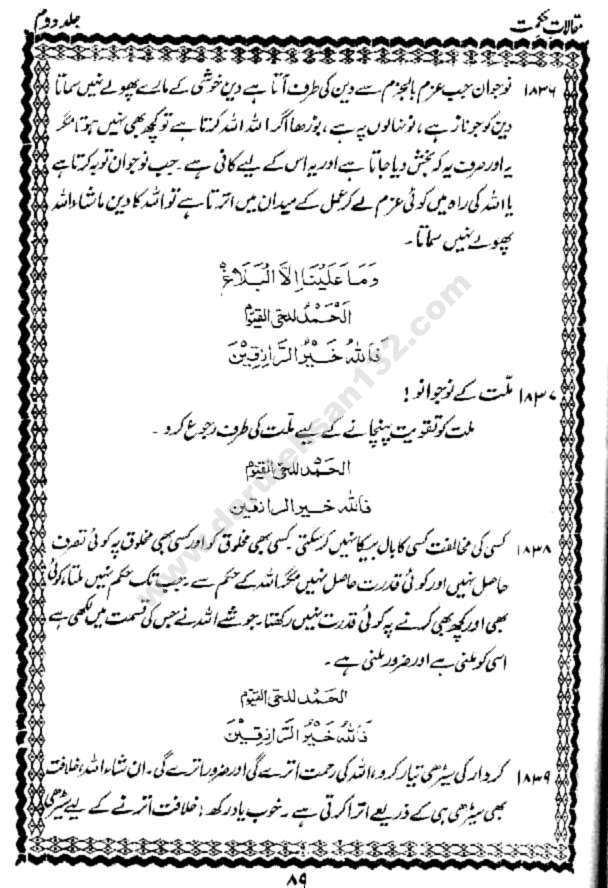 مقالاتِ حکمت
جلد دوم
۱۸۳۶ نوجوان جب عزم بالجزم سے دین کی طرف آتا ہے دین خوشی کے مارے پھولے نہیں سماتا
دین کو جو ناز ہے، نونہالوں پہ ہے، بوڑھا اگر اللہ اللہ کرتا ہے تو کچھ بھی نہیں ہوتا مگر
یہ اور صرف یہ کہ بخش دیا جاتا ہے اور یہ اس کے لیے کافی ہے۔ جب نوجوان توبہ کرتا ہے
یا اللہ کی راہ میں کوئی عزم لے کر عمل کے میدان میں اترتا ہے تو اللہ کا دین ماشاء اللہ
پھولے نہیں سماتا۔
وَمَا عَلَيْنَا اِلَّا الْبَلَاغُ
الْحَمْدُ للحی القیّوم
فَاللهُ خَيْرُ الرَّازِقِيْنَ
۱۸۳۷ ملّت کے نوجوانو!
ملت کو تقویت پہنچانے کے لیے ملّت کی طرف رجوع کرو۔
الحمد للحی القیوم
فالله خیر الرازقین
۱۸۳۸ کسی کی مخالفت کسی کا بال بیکا نہیں کر سکتی۔ کسی بھی مخلوق کو اور کسی بھی مخلوق پہ کوئی تصرف
حاصل نہیں اور کوئی قدرت حاصل نہیں مگر اللہ کے حکم سے۔ جب تک حکم نہیں ملتا، کوئی
بھی اور کچھ بھی کرنے پہ کوئی قدرت نہیں رکھتا۔ جو شے اللہ نے جس کی قسمت میں لکھی ہے
اسی کو ملنی ہے اور ضرور ملنی ہے۔
الحمد للحی القیوم
فَاللهُ خَيْرُ الرَّازِقِيْنَ
۱۸۳۹ کردار کی سیڑھی تیار کرو، اللہ کی رحمت اترے گی اور ضرور اترے گی۔ ان شاء اللہ! خلافت
بھی سیڑھی ہی کے ذریعے اترا کرتی ہے۔ خوب یاد رکھ! خلافت اترنے کے لیے سیڑھی
۸۹
www.darulehsan132.com